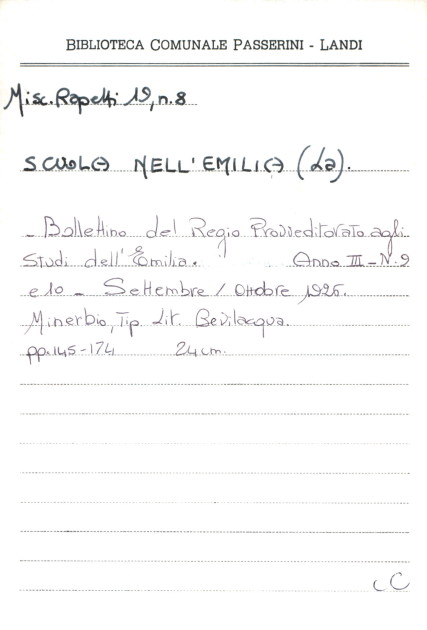 BIBLIOTECA COMUNALE PASSERINI - LANDI
Misc. Rapetti 19, n. 8
SCUOLA NELL'EMILIA (La).
- Bollettino del Regio Provveditorato agli
Studi dell'Emilia. Anno III - N. 9
e 10 - Settembre / Ottobre 1926.
Minerbio, Tip. Lit. Bevilacqua.
pp. 145-174 24 cm.